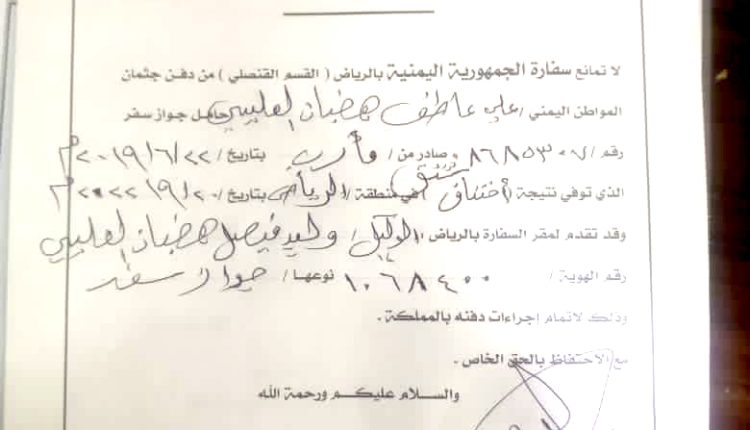 لا تمانع سفارة الجمهورية اليمنية بالرياض ( القسم القنصلي ) من دفن جثمان
المواطن اليمني / علي عاطف هضبان العليبي حامل جواز سفر
رقم / ٠٨٦٨٥٣٠٧ وصادر من / مأرب بتاريخ / ٢٢/٦/٢٠١٩م
الذي توفي نتيجة ( اختناق شنق ) في منطقة / الرياض بتاريخ /
وقد تقدم لمقر السفارة بالرياض / الوكيل / وليد فيصل هضبان العليبي
رقم الهوية / ١٠٦٨٤٠٠ نوعها / جواز سفر
وذلك لاتمام إجراءات دفنه بالمملكة .
مع الاحتفاظ بالحق الخاص .
والسلام عليكم ورحمة الله